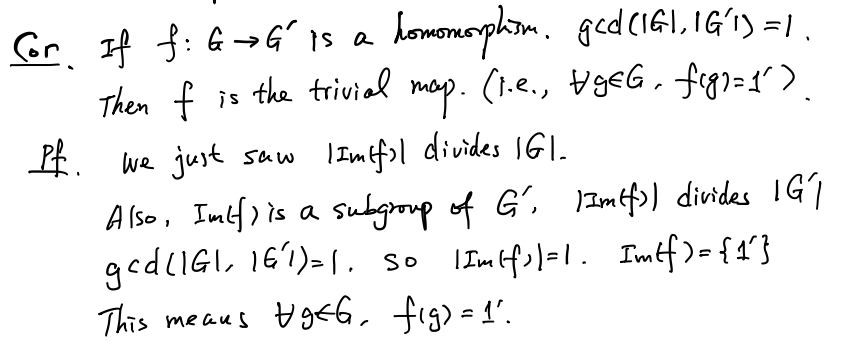 Cor. If f: G → G' is a homomorphism. gcd(|G|, |G'|) = 1.
Then f is the trivial map. (i.e., ∀g∈G, f(g)=1').
Pf. We just saw |Im(f)| divides |G|.
Also, Im(f) is a subgroup of G', |Im(f)| divides |G'|
gcd(|G|, |G'|)=1. so |Im(f)|=1. Im(f) = {1'}
This means ∀g∈G, f(g) = 1'.